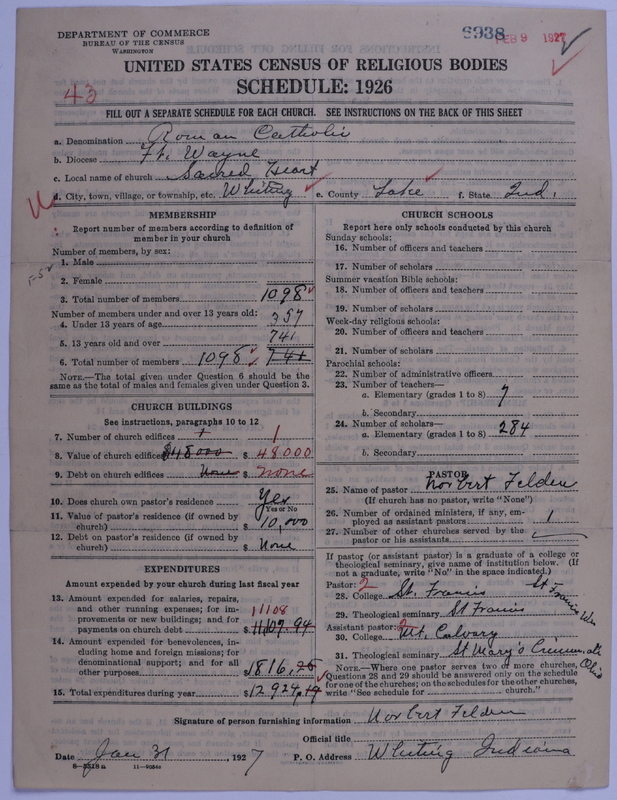 DEPARTMENT OF COMMERCE
BUREAU OF THE CENSUS
WASHINGTON
6938 FEB 9 1927
UNITED STATES CENSUS OF RELIGIOUS BODIES
SCHEDULE: 1926
43
FILL OUT A SEPARATE SCHEDULE FOR EACH CHURCH. SEE INSTRUCTIONS ON THE BACK OF THIS SHEET
a. Denomination Roman Catholic
b. Diocese Ft. Wayne
c. Local name of church Sacred Heart
d. City, town, village, or township, etc. Whiting e. County Lake f. State Ind.
MEMBERSHIP
Report number of members according to definition of
member in your church
Number of members, by sex:
1. Male
2. Female
3. Total number of members 1098
Number of members under and over 13 years old:
4. Under 13 years of age 357
5. 13 years old and over 741
6. Total number of members 1098 741
NOTE.—The total given under Question 6 should be the
same as the total of males and females given under Question 3.
CHURCH BUILDINGS
See instructions, paragraphs 10 to 12
7. Number of church edifices 1 1
8. Value of church edifices $48000 $ 48000
9. Debt on church edifices None $ none
10. Does church own pastor's residence Yes
Yes or No
11. Value of pastor's residence (if owned by
church) $ 10,000
12. Debt on pastor's residence (if owned by
church) $ None
EXPENDITURES
Amount expended by your church during last fiscal year
13. Amount expended for salaries, repairs,
and other running expenses; for im-
provements or new buildings; and for
payments on church debt 11108 $ 11,107.94
14. Amount expended for benevolences, in-
cluding home and foreign missions; for
denominational support; and for all
other purposes 1816.25
15. Total expenditures during year $ 12924.19
CHURCH SCHOOLS
Report here only schools conducted by this church
Sunday schools:
16. Number of officers and teachers
17. Number of scholars
Summer vacation Bible schools:
18. Number of officers and teachers
19. Number of scholars
Week-day religious schools:
20. Number of officers and teachers
21. Number of scholars
Parochial schools:
22. Number of administrative officers
23. Number of teachers—
a. Elementary (grades 1 to 8) 7
b. Secondary
24. Number of scholars—
a. Elementary (grades 1 to 8) 284
b. Secondary
PASTOR
25. Name of pastor Norbert Felden
(If church has no pastor, write "None")
26. Number of ordained ministers, if any, em-
ployed as assistant pastors 1
27. Number of other churches served by the
pastor or his assistants
If pastor (or assistant pastor) is a graduate of a college or
theological seminary, give name of institution below. (If
not a graduate, write "No" in the space indicated.)
Pastor: 2
28. College St. Francis St Francis Wis
29. Theological seminary St Francis
Assistant pastor: 2
30. College Mt. Calvary
31. Theological seminary St Mary's Cincinnati Ohio
NOTE.—Where one pastor serves two or more churches,
Questions 28 and 29 should be answered only on the schedule
for one of the churches; on the schedules for the other churches,
write "See schedule for church."
Signature of person furnishing information Norbert Felden
Official title
Date Jan 31, 1927 P. O. Address Whiting Indiana
11—9056a